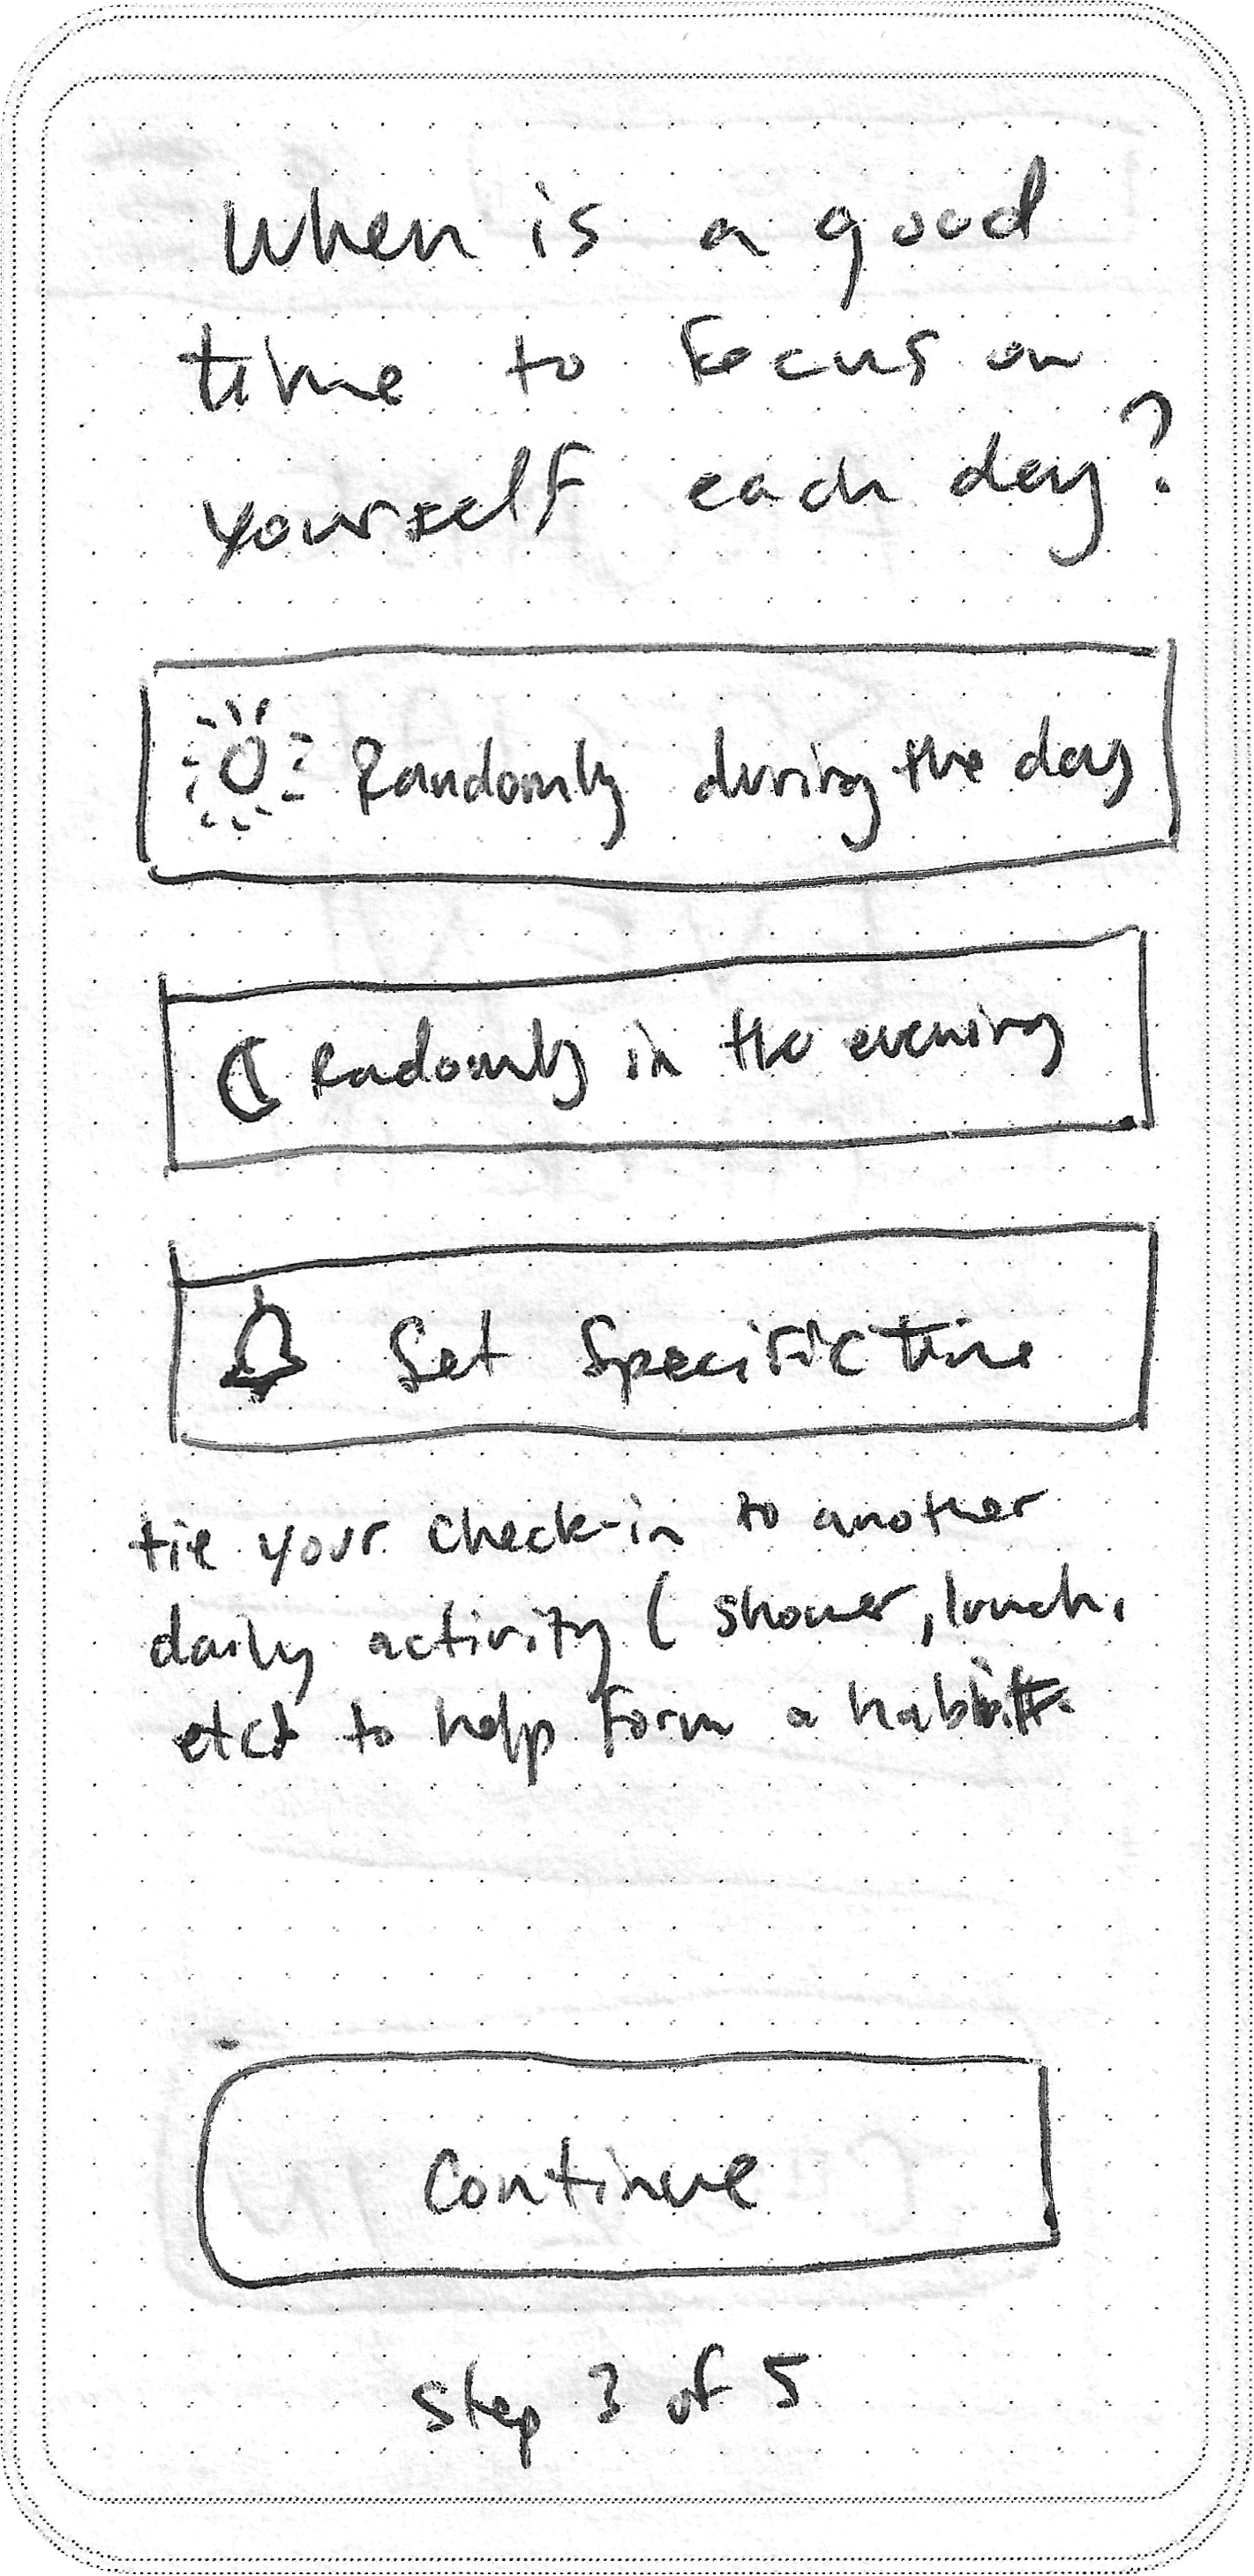 When is a good
time to focus on
yourself each day?
Randomly during the day
Radomly in the evening
Set Specific time
tie your check-in to another
daily activity (shower, lunch,
etc) to help form a habit.
Continue
Step 3 of 5